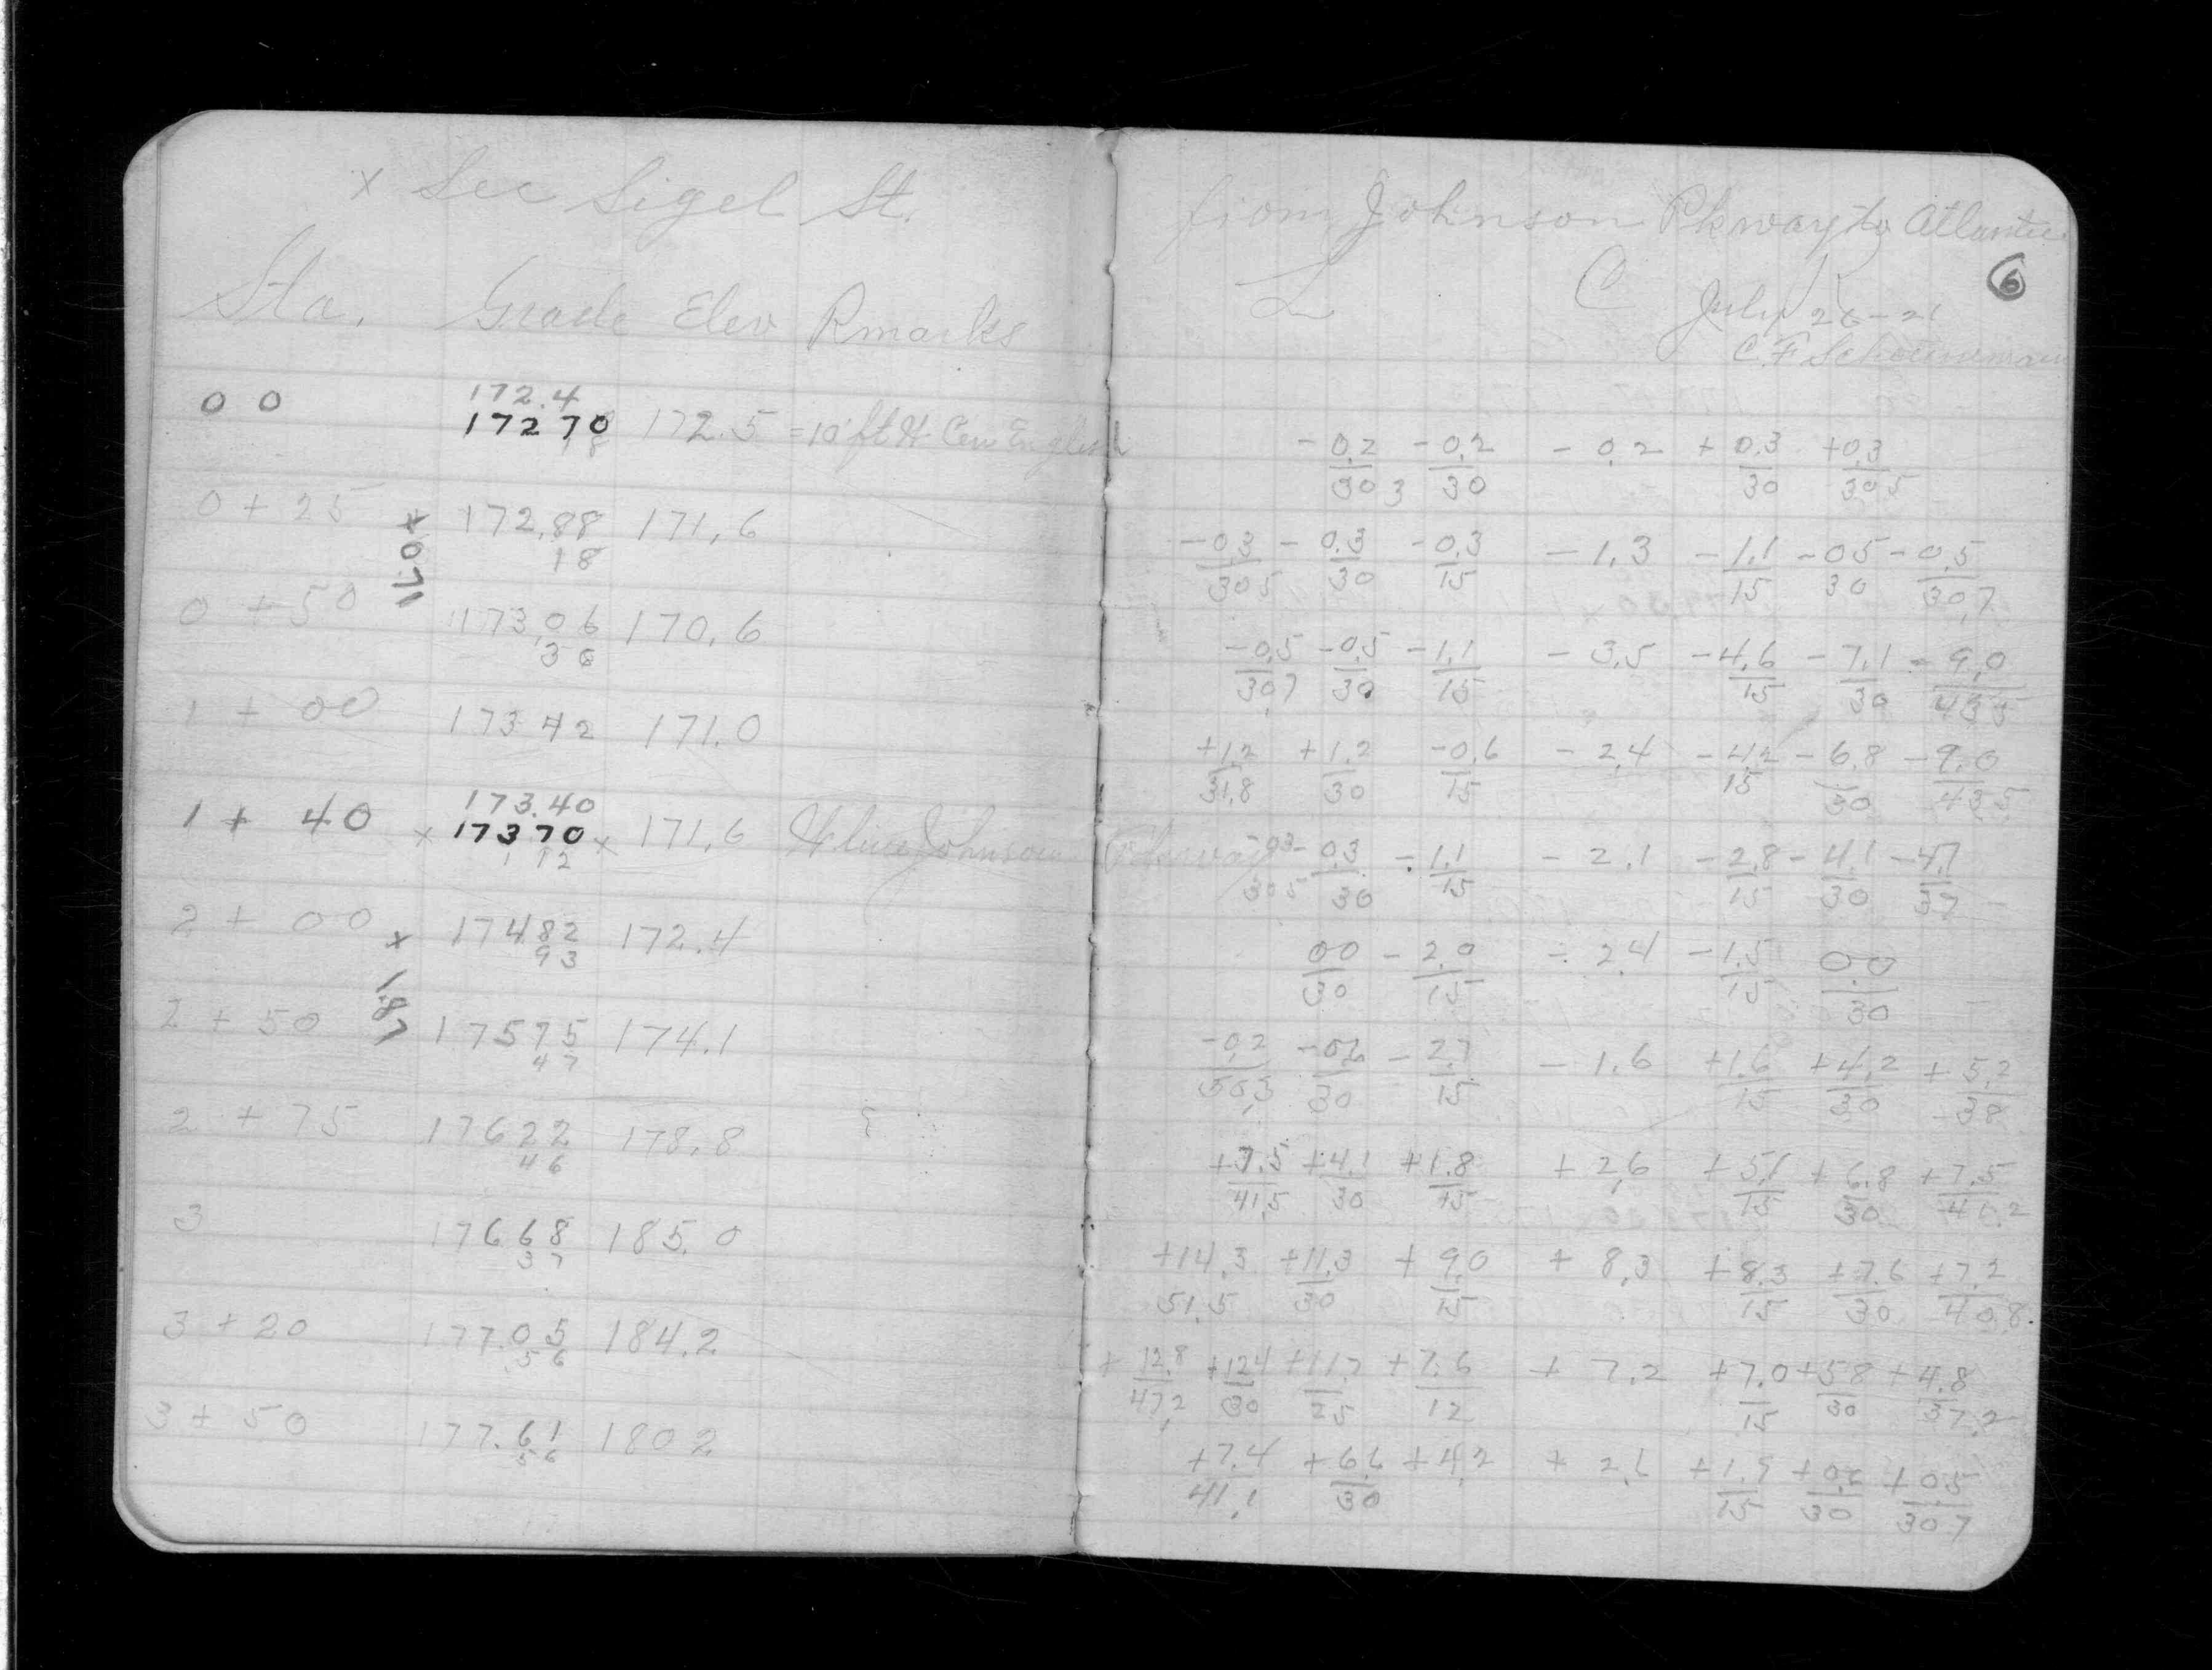 x Sec Sigel St.
Sta. Grade Elev Rmarks
172.4
0 0 172 70 172.5 = 10 ft
18
0 + 25 172.88 171.6
18
x 0.71
0 + 50 173.06 170.6
36
1 + 00 173 42 171.0
173.40
1 + 40 x 173 70 x 171.6 line Johnson Pkway
1 12
2 + 00 x 174 82 172.4
93
1.87
2 + 50 175 75 174.1
47
2 + 75 176 22 178.8
46
3 176 68 185.0
37
3 + 20 177.05 184.2
56
3 + 50 177.61 180 2
56
from Johnson Pkway to Atlantic
L C R
6
July 26-21
C. F.
- 0.2 - 0.2 - 0.2 + 0.3 +0.3
30 3 30 30 30 5
- 0.3 - 0.3 - 0.3 - 1.3 - 1.1 - 0 5 - 0.5
30 5 30 15 15 30 30.7
- 0.5 - 0.5 - 1.1 - 3.5 - 4.6 - 7.1 - 9.0
30.7 30 15 15 30 43 5
+1.2 +1.2 -0.6 - 2.4 - 4.2 - 6.8 - 9.0
31.8 30 15 15 30 43.5
- 0 3 - 0.3 - 1.1 - 2.1 - 2.8 - 4.1 - 4.7
30 5 30 15 15 30 37
0 0 - 2.0 - 2.4 - 1.5 0.0
30 15 15 30
- 0.2 - 0.2 - 2.7 - 1.6 +1.6 +4.2 + 5.2
30.3 30 15 15 30 38
+7.5 +4.1 +1.8 + 2.6 + 5.1 + 6.8 + 7.5
41.5 30 15 15 30 41.2
+14.3 +11.3 + 9.0 + 8.3 + 8.3 + 7.6 +7.2
51.5 30 15 15 30 40.8
+ 12.8 +12 4 +11.7 + 7.6 + 7.2 +7.0 +5 8 + 4.8
47.2 30 25 12 15 30 37.2
+7.4 + 6.6 + 4.2 + 2.6 + 1.9 + 0.6 + 0.5
41.1 30 15 30 30 7